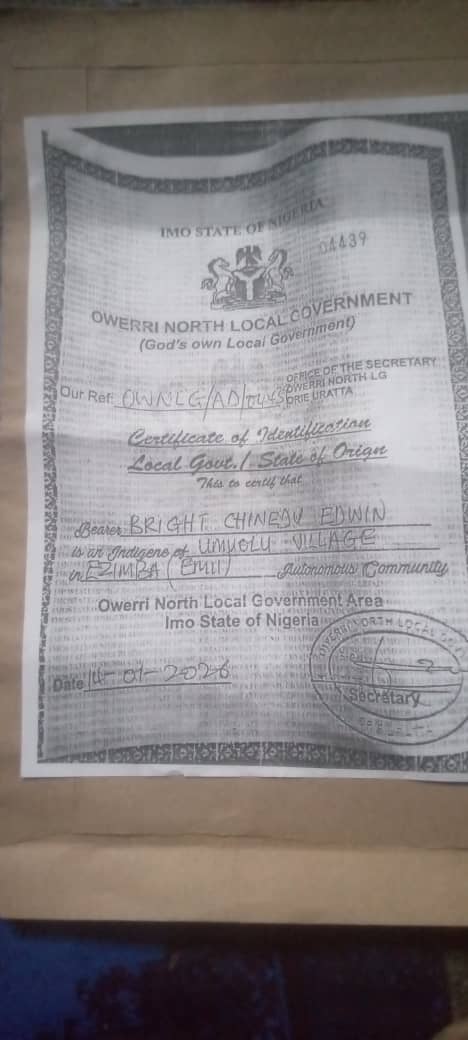 IMO STATE OF NIGERIA
04439
OWERRI NORTH LOCAL GOVERNMENT
(God's own Local Government)
OFFICE OF THE SECRETARY
OWERRI NORTH LG
ORIE URATTA
Our Ref: OWNLG/AD/
Certificate of Identification
Local Govt./ State of Orign
This to certify that
Bearer BRIGHT EDWIN
is an Indigene of VILLAGE
in EZIMBA (EMII) Autonomous Community
Owerri North Local Government Area
Imo State of Nigeria
OWERRI NORTH LOCAL
Sign
Date 14-01-2026
Secretary